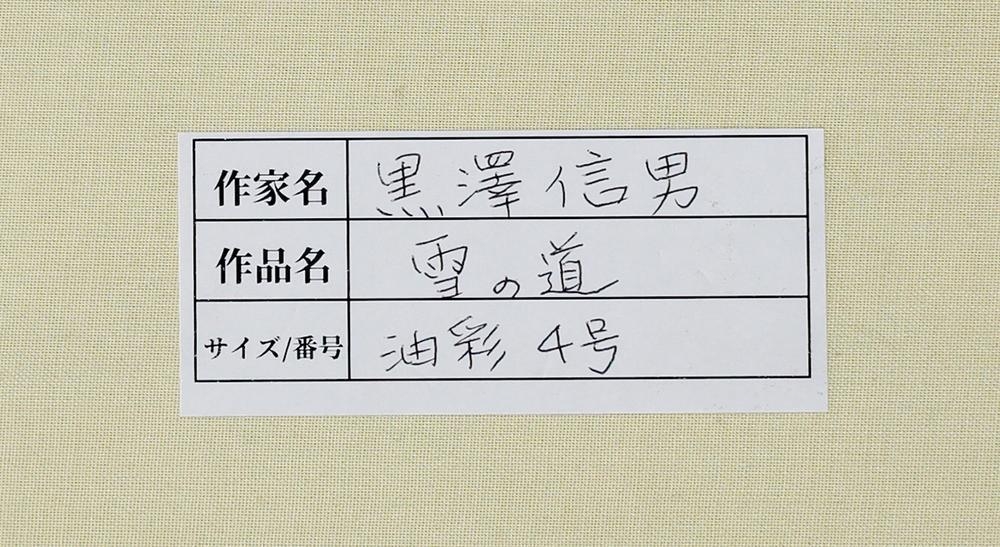 作家名 黒澤信男
作品名 雪の道
サイズ/番号 油彩 4号